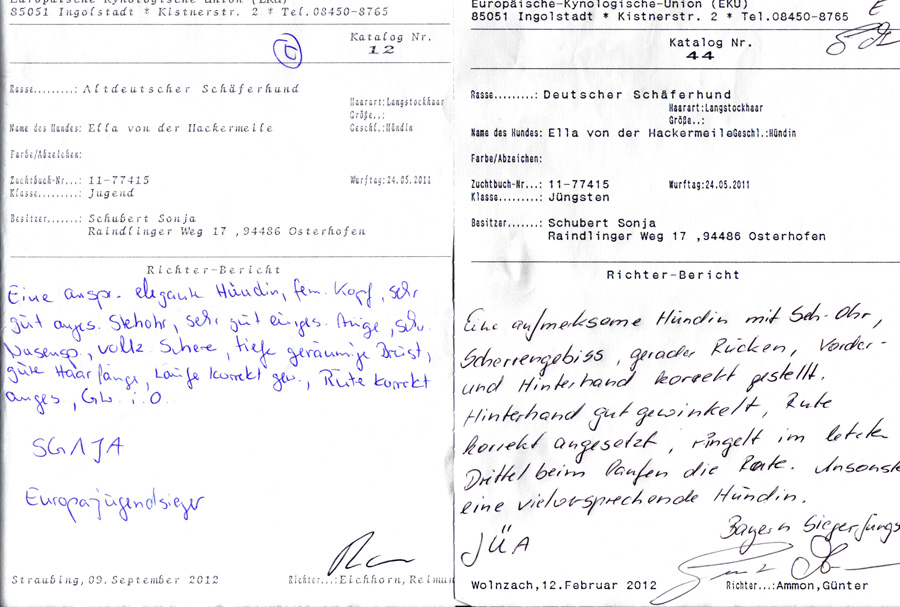 Europäische Kynologische Union (EKU)
85051 Ingolstadt * Kistnerstr. 2 * Tel.08450-8765
Katalog Nr.
12
Rasse.........: Altdeutscher Schäferhund
Haarart:Langstockhaar
Größe..:
Name des Hundes: Ella von der Hackermeile
Geschl.:Hündin
Farbe/Abzeichen:
Zuchtbuch-Nr...: 11-77415
Wurftag:24.05.2011
Klasse.........: Jugend
Besitzer.......: Schubert Sonja
Raindlinger Weg 17 ,94486 Osterhofen
Richter-Bericht
Eine anspr. elegante Hündin, fem. Kopf, sehr
gut anges. Stehohr, sehr gut einges. Auge, schw.
Nasensp., vollz. Schere, tiefe geräumige Brust,
gute Haarlänge, Läufe korrekt gew., Rute korrekt
anges, Gw. i.O.
SG1 JA
Europajugendsieger
Straubing, 09.September 2012
Richter...:Eichhorn, Reimun
Europäische-Kynologische-Union (EKU)
85051 Ingolstadt * Kistnerstr. 2 * Tel.08450-8765
E
Katalog Nr.
44
Rasse.........: Deutscher Schäferhund
Haarart:Langstockhaar
Größe..:
Name des Hundes: Ella von der HackermeileGeschl.:Hündin
Farbe/Abzeichen:
Zuchtbuch-Nr...: 11-77415
Wurftag:24.05.2011
Klasse.........: Jüngsten
Besitzer.......: Schubert Sonja
Raindlinger Weg 17 ,94486 Osterhofen
Richter-Bericht
Eine aufmerksame Hündin mit Seh-Ohr,
Scherengebiss, gerader Rücken, Vorder-
und Hinterhand korrekt gestellt.
Hinterhand gut gewinkelt, Rute
korrekt angesetzt, ringelt im letzten
Drittel beim laufen die Rute. Ansonst
eine vielversprechende Hündin.
Bayern Siegerjüngs
JÜA
Wolnzach,12.Februar 2012
Richter...:Ammon,Günter